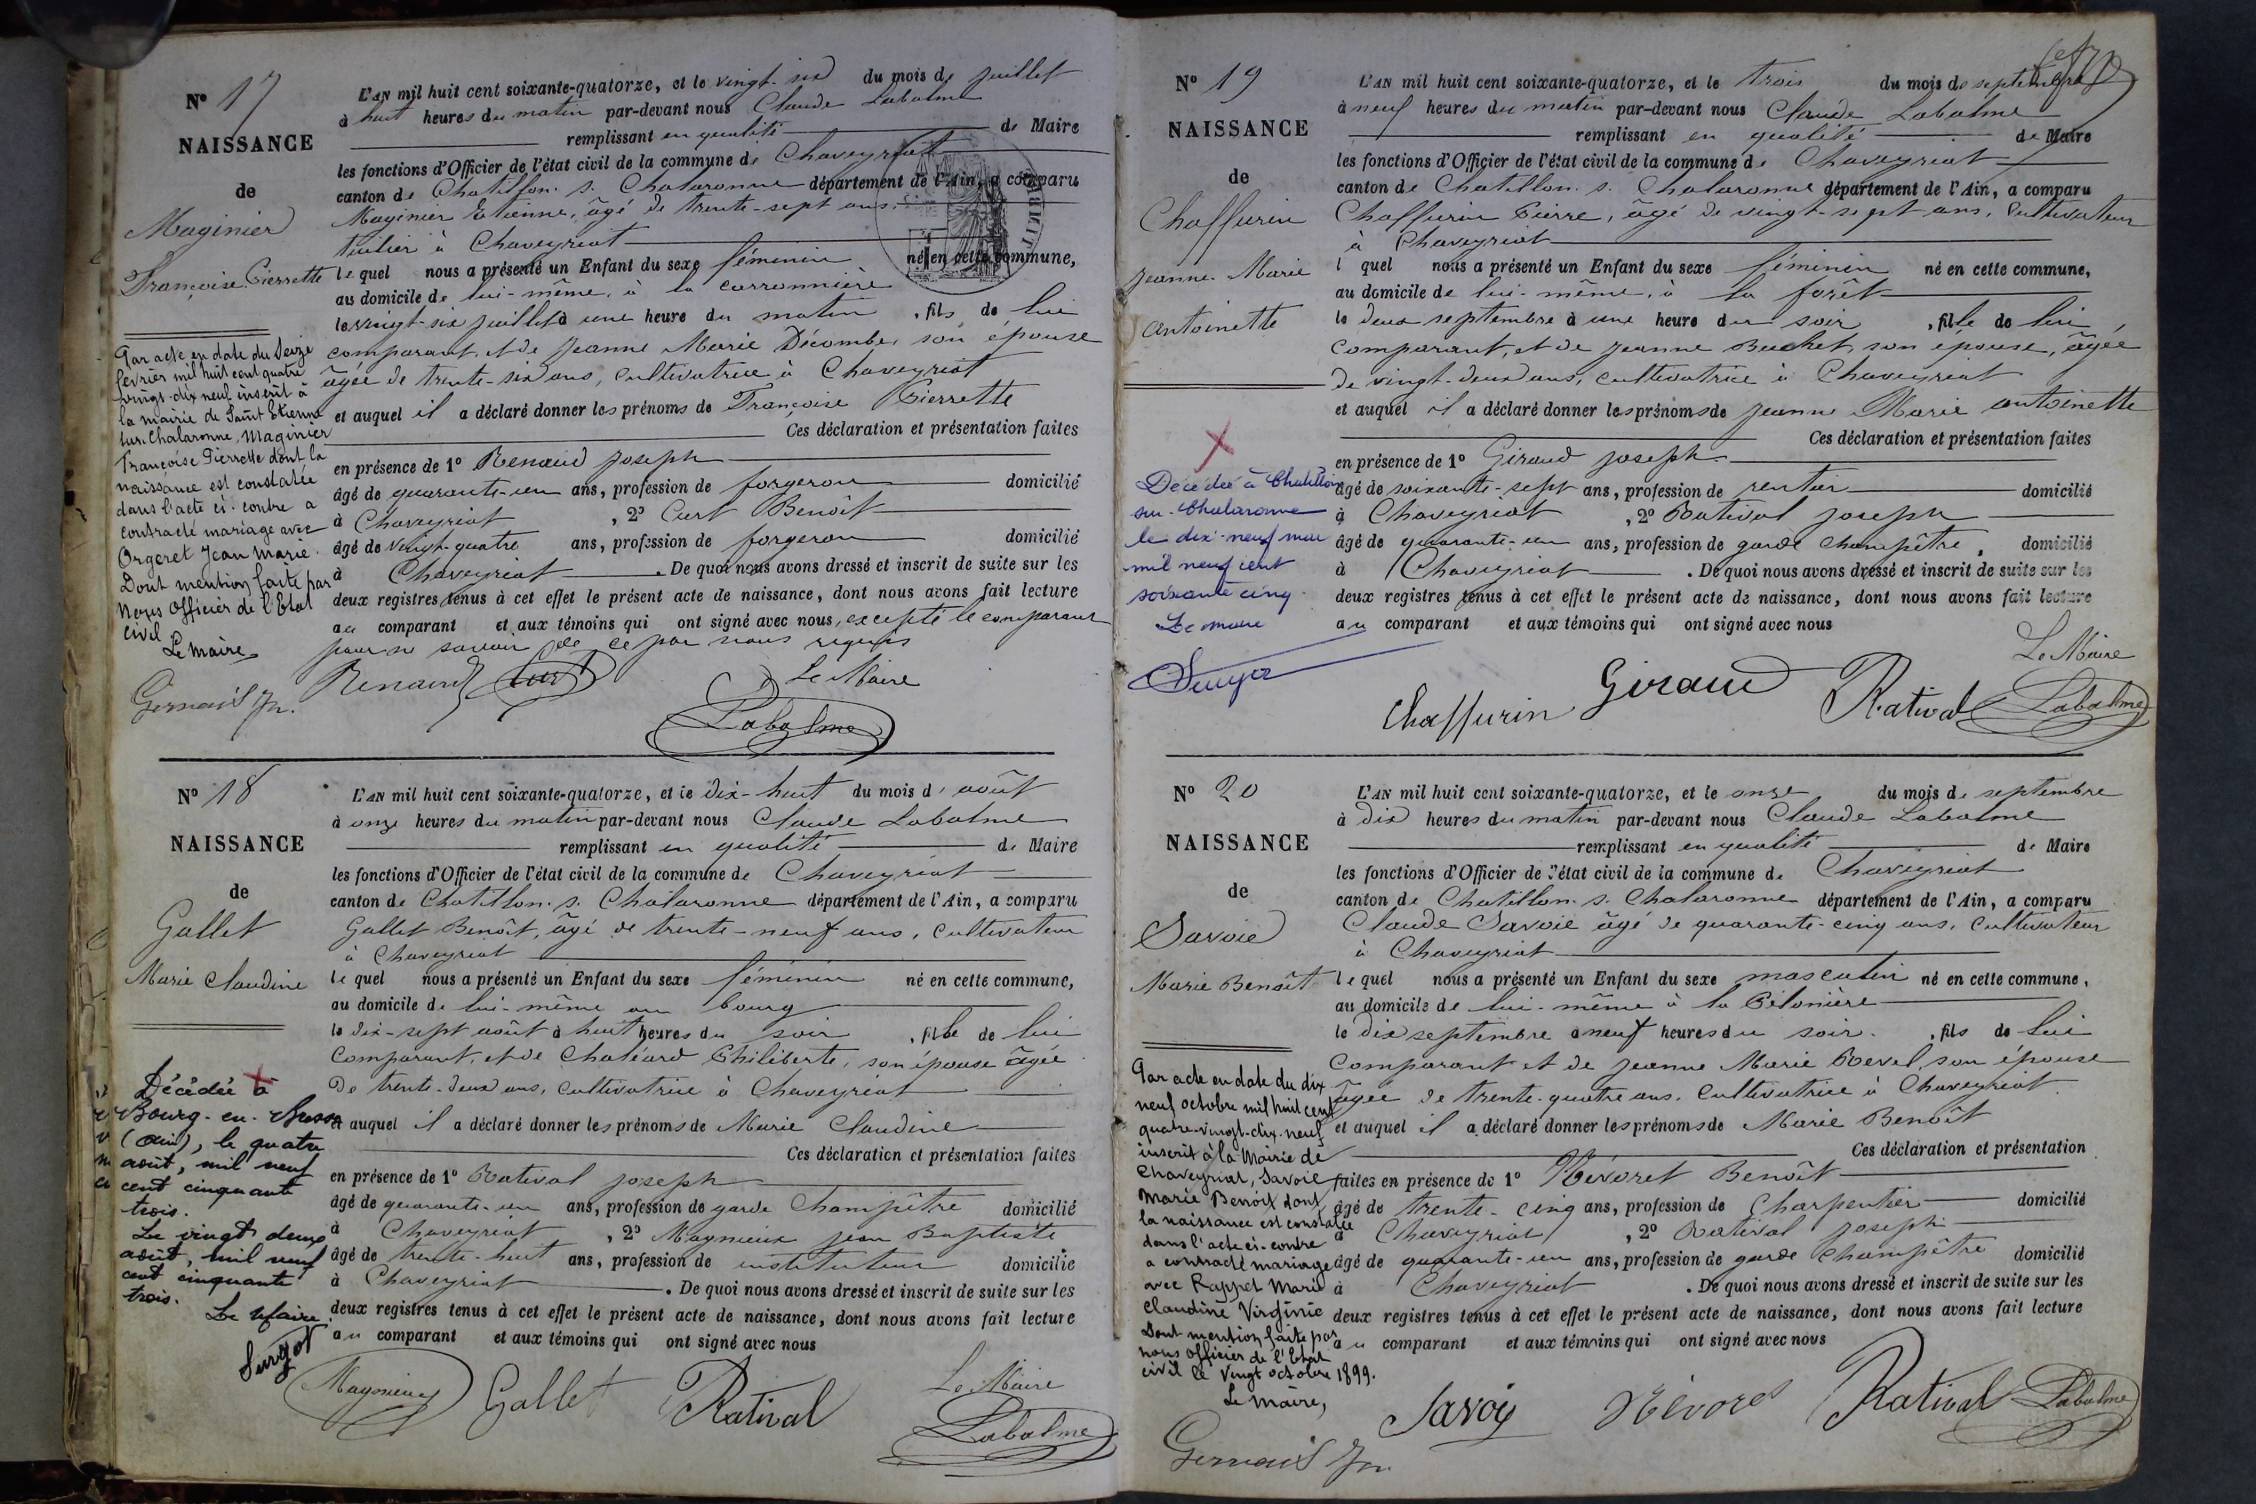 N° 17
NAISSANCE
de
Maginier
Françoise Pierrette
Par acte en date du Seize
février mil huit cent quatre
vingt-dix neuf inscrit à
la mairie de Saint Etienne
sur Chalaronne, Maginier
Françoise Pierrette dont la
naissance est constatée
dans l'acte ci-contre a
contracté mariage avec
Orgeret Jean Marie.
Dont mention faite par
Nous Officier de l'Etat
civil
Le Maire
Gervais Jn.
L'AN mil huit cent soixante-quatorze, et le vingt-six du mois de juillet
à huit heures du matin par-devant nous Claude Labalme
remplissant en qualité de Maire
les fonctions d'Officier de l'état civil de la commune de Chaveyriat
canton de Chatillon s. Chalaronne département de l'Ain, a comparu
Maginier Etienne, âgé de trente-sept ans,
tuilier à Chaveyriat
lequel nous a présenté un Enfant du sexe féminin né en cette commune,
au domicile de lui-même, à la carronnière
le vingt-six juillet à une heure du matin, fils de lui
comparant, et de Jeanne Marie Décombe, son épouse
âgée de trente-six ans, cultivatrice à Chaveyriat
et auquel il a déclaré donner les prénoms de Françoise Pierrette
Ces déclaration et présentation faites
en présence de 1° Renaud Joseph
âgé de quarante-un ans, profession de forgeron domicilié
à Chaveyriat, 2° Curt Benoît
âgé de vingt-quatre ans, profession de forgeron domicilié
à Chaveyriat. De quoi nous avons dressé et inscrit de suite sur les
deux registres tenus à cet effet le présent acte de naissance, dont nous avons fait lecture
au comparant et aux témoins qui ont signé avec nous, excepté le comparant
pour ne savoir de ce par nous requis
Renaud Curt Le Maire
Labalme
N° 18
NAISSANCE
de
Gallet
Marie Claudine
Décédée à
Bourg-en-Bresse
(Ain), le quatre
août, mil neuf
cent cinquante
trois.
Le vingt deux
août, mil neuf
cent cinquante
trois.
Le Maire
L'AN mil huit cent soixante-quatorze, et le dix-huit du mois d'août
à onze heures du matin par-devant nous Claude Labalme
remplissant en qualité de Maire
les fonctions d'Officier de l'état civil de la commune de Chaveyriat
canton de Chatillon s. Chalaronne département de l'Ain, a comparu
Gallet Benoît, âgé de trente-neuf ans, cultivateur
à Chaveyriat
lequel nous a présenté un Enfant du sexe féminin né en cette commune,
au domicile de lui-même au bourg
le dix-sept août à huit heures du soir, fille de lui
comparant, et de Chatéard Philiberte, son épouse âgée
de trente-deux ans, cultivatrice à Chaveyriat
et auquel il a déclaré donner les prénoms de Marie Claudine
Ces déclaration et présentation faites
en présence de 1° Ratival Joseph
âgé de quarante-un ans, profession de garde Champêtre domicilié
à Chaveyriat, 2° Magnieux Jean Baptiste
âgé de trente-huit ans, profession de instituteur domicilié
à Chaveyriat. De quoi nous avons dressé et inscrit de suite sur les
deux registres tenus à cet effet le présent acte de naissance, dont nous avons fait lecture
au comparant et aux témoins qui ont signé avec nous
Magnieux Gallet Ratival Le Maire
Labalme
N° 19
NAISSANCE
de
Chaffurin
Jeanne Marie
Antoinette
Décédée à Chatillon
sur-Chalaronne
le dix-neuf mai
mil neuf cent
soixante cinq.
Le maire
L'AN mil huit cent soixante-quatorze, et le trois du mois de septembre
à neuf heures du matin par-devant nous Claude Labalme
remplissant en qualité de Maire
les fonctions d'Officier de l'état civil de la commune de Chaveyriat
canton de Chatillon s. Chalaronne département de l'Ain, a comparu
Chaffurin Pierre, âgé de vingt-sept ans, cultivateur
à Chaveyriat
lquel nous a présenté un Enfant du sexe féminin né en cette commune,
au domicile de lui-même, à la forêt
le deux septembre à une heure du soir, fille de lui
comparant, et de Jeanne Buchet, son épouse, âgée
de vingt-deux ans, cultivatrice à Chaveyriat
et auquel il a déclaré donner les prénoms de Jeanne Marie Antoinette
Ces déclaration et présentation faites
en présence de 1° Giraud Joseph
âgé de soixante-sept ans, profession de rentier domicilié
à Chaveyriat, 2° Ratival Joseph
âgé de quarante-un ans, profession de garde champêtre, domicilié
à Chaveyriat. De quoi nous avons dressé et inscrit de suite sur les
deux registres tenus à cet effet le présent acte de naissance, dont nous avons fait lecture
au comparant et aux témoins qui ont signé avec nous
Le Maire
Chaffurin Giraud Ratival Labalme
N° 20
NAISSANCE
de
Savoie
Marie Benoît
Par acte en date du dix
neuf octobre mil huit cent
quatre-vingt-dix-neuf
inscrit à la Mairie de
Chaveyriat, Savoie
Marie Benoît dont
la naissance est constatée
dans l'acte ci-contre
a contracté mariage
avec Rappet Marie
Claudine Virginie
Dont mention faite par
nous Officier de l'Etat
civil le vingt octobre 1899.
Le Maire,
Gervais Jn.
L'AN mil huit cent soixante-quatorze, et le onze du mois de septembre
à dix heures du matin par-devant nous Claude Labalme
remplissant en qualité de Maire
les fonctions d'Officier de l'état civil de la commune de Chaveyriat
canton de Chatillon s. Chalaronne département de l'Ain, a comparu
Claude Savoie âgé de quarante-cinq ans, cultivateur
à Chaveyriat
lequel nous a présenté un Enfant du sexe masculin né en cette commune,
au domicile de lui-même à la Pélonière
le dix septembre à neuf heures du soir, fils de lui
comparant et de Jeanne Marie Revel, son épouse
âgée de trente-quatre ans, cultivatrice à Chaveyriat
et auquel il a déclaré donner les prénoms de Marie Benoît
Ces déclaration et présentation
faites en présence de 1° Névoret Benoît
âgé de trente-cinq ans, profession de Charpentier domicilié
à Chaveyriat, 2° Ratival Joseph
âgé de quarante-un ans, profession de garde Champêtre domicilié
à Chaveyriat. De quoi nous avons dressé et inscrit de suite sur les
deux registres tenus à cet effet le présent acte de naissance, dont nous avons fait lecture
au comparant et aux témoins qui ont signé avec nous
Savoy Névoret Ratival Labalme